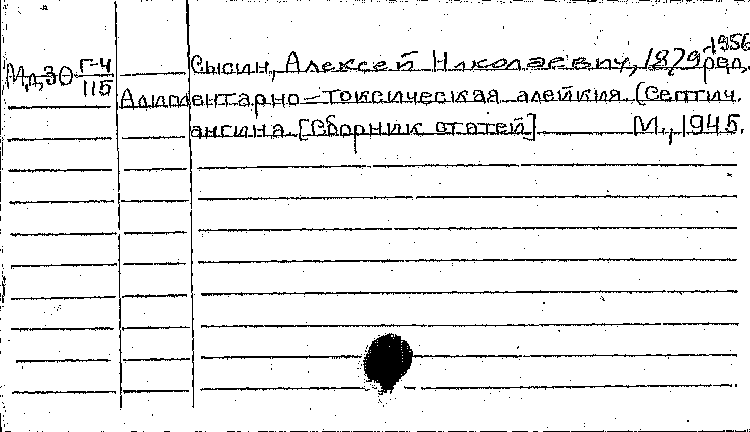 Мл,30 Г-4/115 Сысин, Алексей Николаевич, 1879-1956 ред.
Алиментарно-токсическая алейкия. (Септич.
ангина. [Сборник статей] М., 1945.